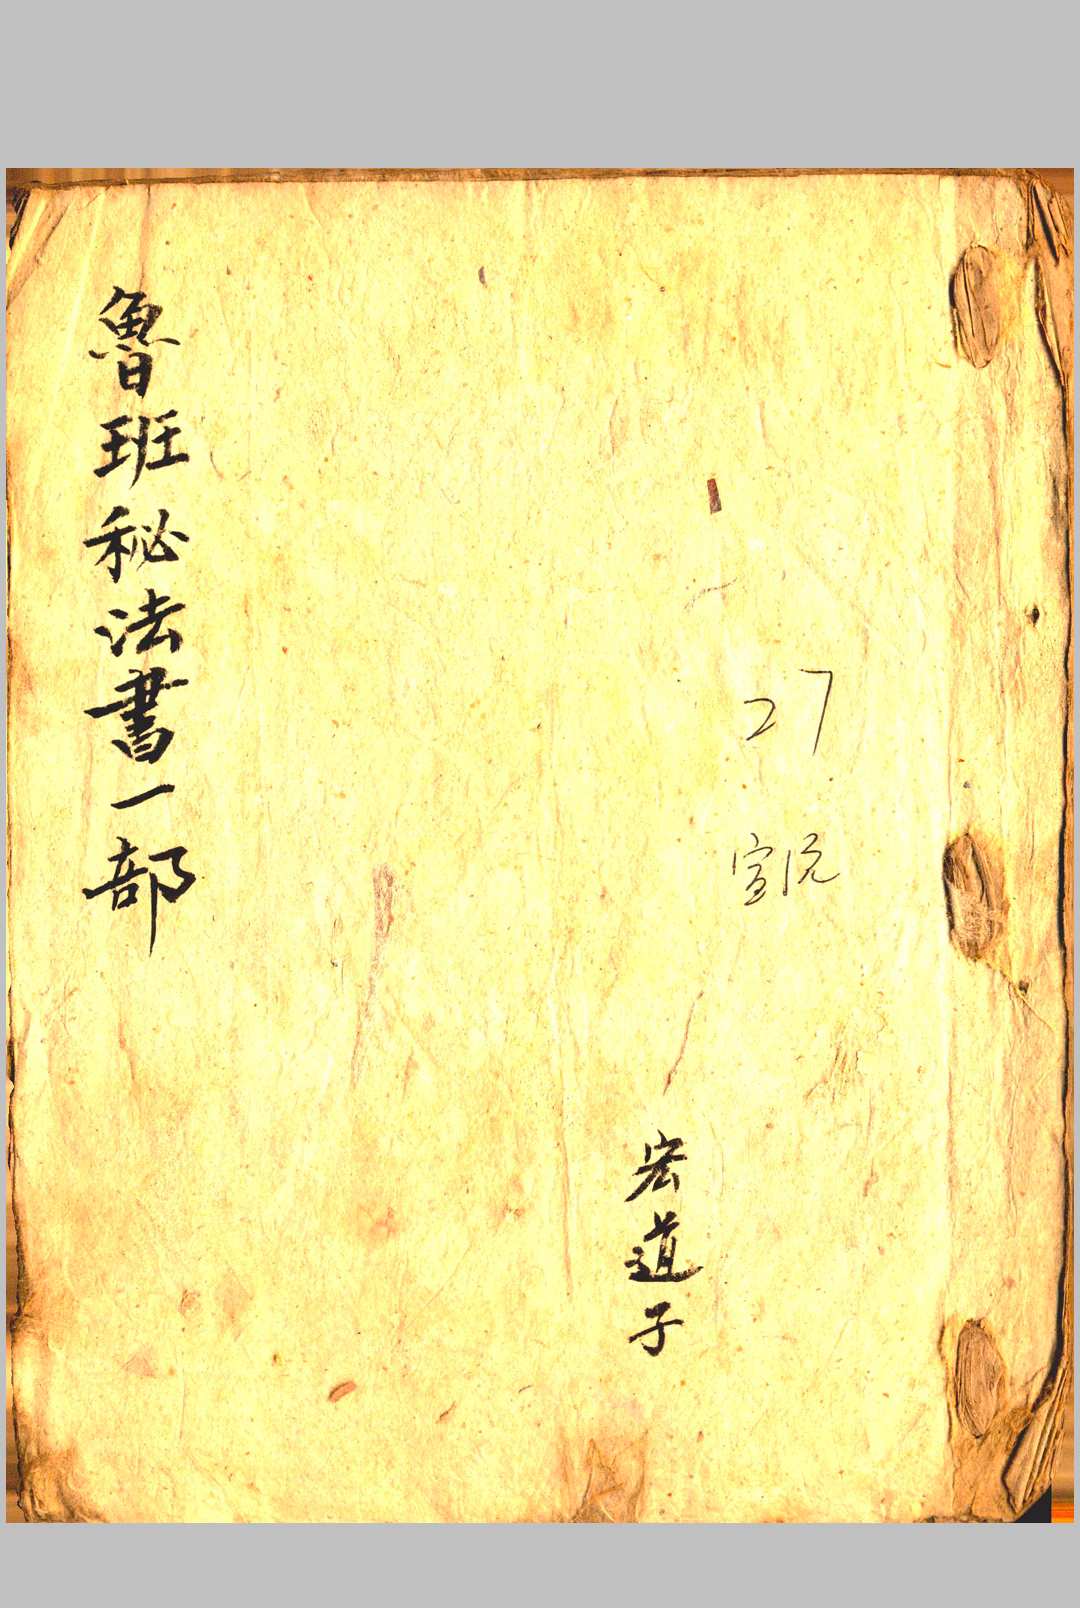 27
宏道子
魯班秘法書一部